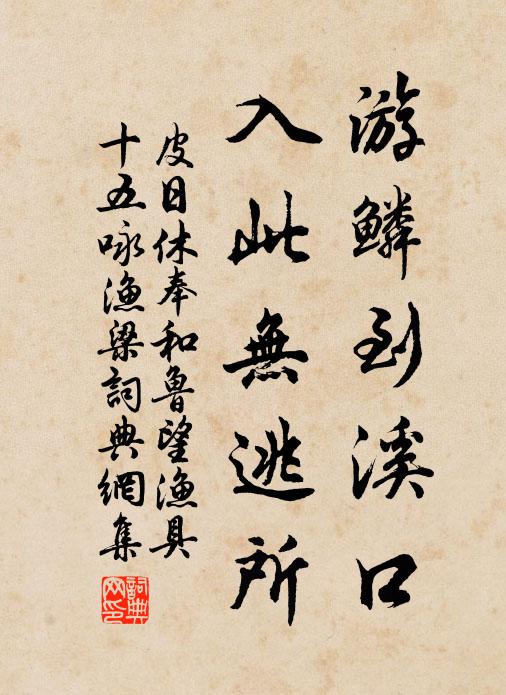 游鱗到溪口
入此無逃所
皮日休奉和魯望漁具
十五咏漁梁詞典網集
詞典网印